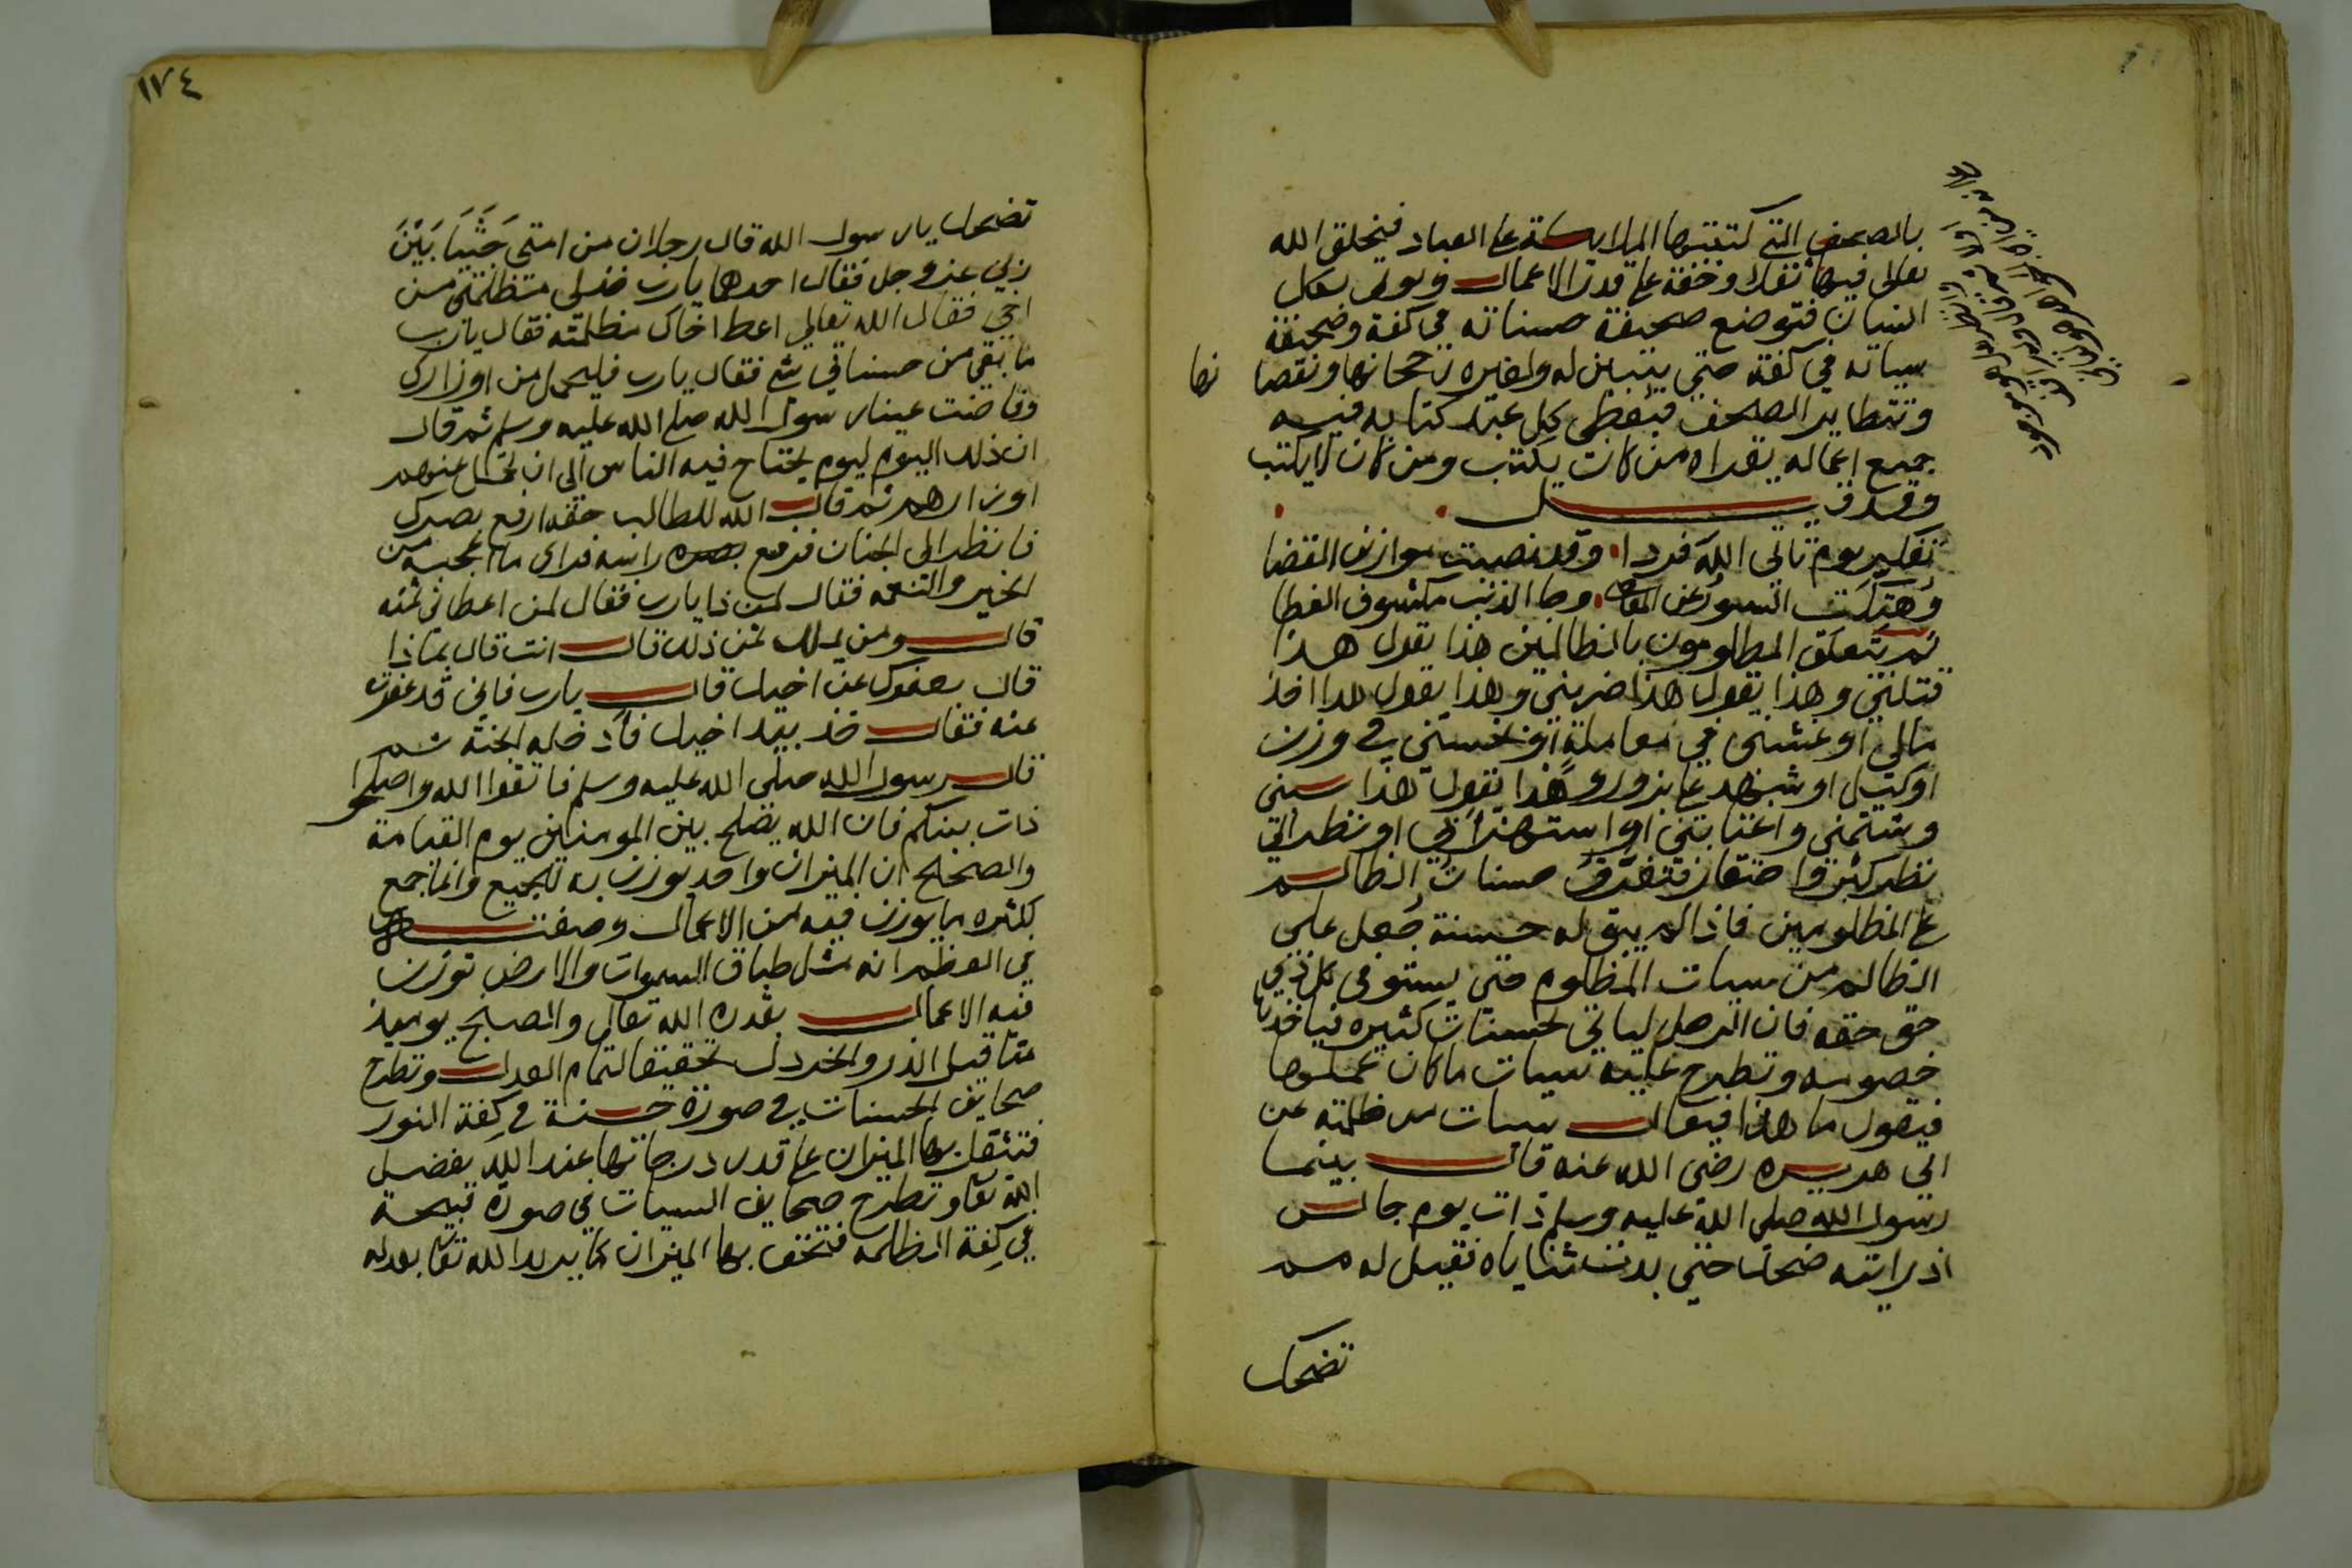 بالصحف التي كتبتها الملايكة على العباد فيخلق الله
تعالى فيها ثقلا وخفة على قدر الاعمال
انسان فتوضع صحيفة حسناته في كفة وصحيفة
سياته في كفة حتى يتبين له ولغيره رجحانها ونقصا نها
وتتطاير الصحف فيعطى كل عبد كتابه فيه
جميع اعماله يقراه من كان يكتب ومن كان لا يكتب
وقد قيل
تفكر يوم تاتي الله فردا وقد نصبت موازين القضا
وهتكت الستور عن المعاصي وجا الذنب مكشوف الغطا
ثم يتعلق المظلومون بالظالمين هذا يقول هذا
قتلني وهذا يقول هذا ضربني وهذا يقول هذا اخذ
مالي او غشني في معاملة او بخسني في وزن
او كيل او شهد علي بزور وهذا يقول هذا سبني
وشتمني واغتابني او استهزا بي او نظر الي
نظر كبر واحتقار فتفرق حسنات الظالم
على المظلومين فاذا لم يبق له حسنة جعل على
الظالم من سيات المظلوم حتى يستوفى كل ذي
حق حقه فان الرجل لياتي بحسنات كثيره فياخذها
خصومه وتطرح عليه سيات ما كان عملها
فيقول ما هذا فيقال سيات من ظلمته عن
ابي هريره رضى الله عنه قال بينما
رسول الله صلى الله عليه وسلم ذات يوم جالس
اذ رايته ضحك حتى بدت ثناياه فقيل له مم
تضحك
١٧٤
تضحك يا رسول الله قال رجلان من امتي جثيا بين
يدي ربي عز وجل فقال احدهما يارب خذ لي مظلمتي من
اخي فقال الله تعالى اعط اخاك مظلمته فقال يارب
ما بقي من حسناتي شي فقال يارب فليحمل من اوزاري
وفاضت عينا رسول الله صلى الله عليه وسلم ثم قال
ان ذلك اليوم ليوم يحتاج فيه الناس الى ان يحمل عنهم
اوزارهم ثم قال الله للطالب حقه ارفع بصرك
فانظر الى الجنان فرفع بصره راسه فراى ما اعجبه من
الخير والنعمه فقال لمن ذا يارب فقال لمن اعطاني ثمنه
قال ومن يملك ثمن ذلك قال انت قال بماذا
قال بعفوك عن اخيك قال يارب فاني قد غفرت
عنه فقال خذ بيد اخيك فادخله الجنة ثم
قال رسول الله صلى الله عليه وسلم فاتقوا الله واصلحوا
ذات بينكم فان الله يصلح بين المومنين يوم القيامة
والصحيح ان الميزان واحد يوزن به للجميع وانما جمع
لكثره ما يوزن فيه من الاعمال وصفته
في العظم انه مثل طباق السموات والارض توزن
فيه الاعمال بقدرة الله تعالى والصنج يوميذ
مثاقيل الذر والخردل تحقيقا لتمام العدل وتطرح
صحايف الحسنات في صورة حسنة في كفة النور
فتثقل بها الميزان على قدر درجاتها عند الله بفضل
الله تعا وتطرح صحايف السيات في صورة قبيحة
في كفة الظلمه فتخف بها الميزان كما يريد الله تعا بعدله